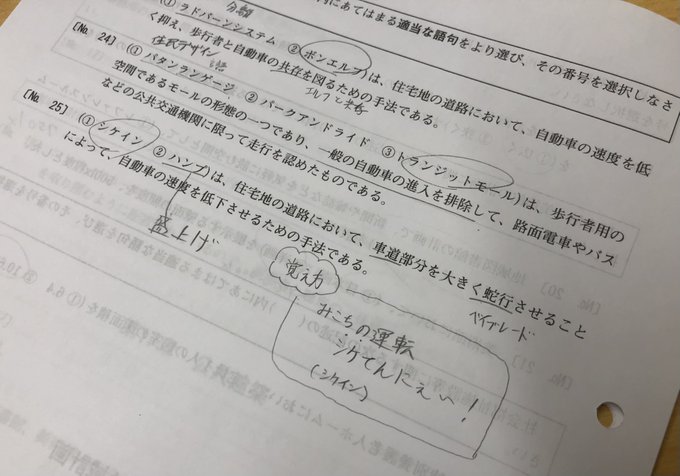 内にあてはまる適当な語句をより選び、その番号を選択しなさ
分離
(① ラドバーンシステム ② ボンエルフ)は、住宅地の道路において、自動車の速度を低
く抑え、歩行者と自動車の共存を図るための手法である。
[No. 24]
(① パタンランゲージ ② パークアンドライド ③ トランジットモール)は、歩行者用の
空間であるモールの形態の一つであり、一般の自動車の進入を排除して、路面電車やバス
などの公共交通機関に限って走行を認めたものである。
[No. 25]
(① シケイン ② ハンプ)は、住宅地の道路において、車道部分を大きく蛇行させること
によって、自動車の速度を低下させるための手法である。
盛上げ
ベイブレード
覚え方
みこちの運転
シケてんにぇ〜!
(シケイン)